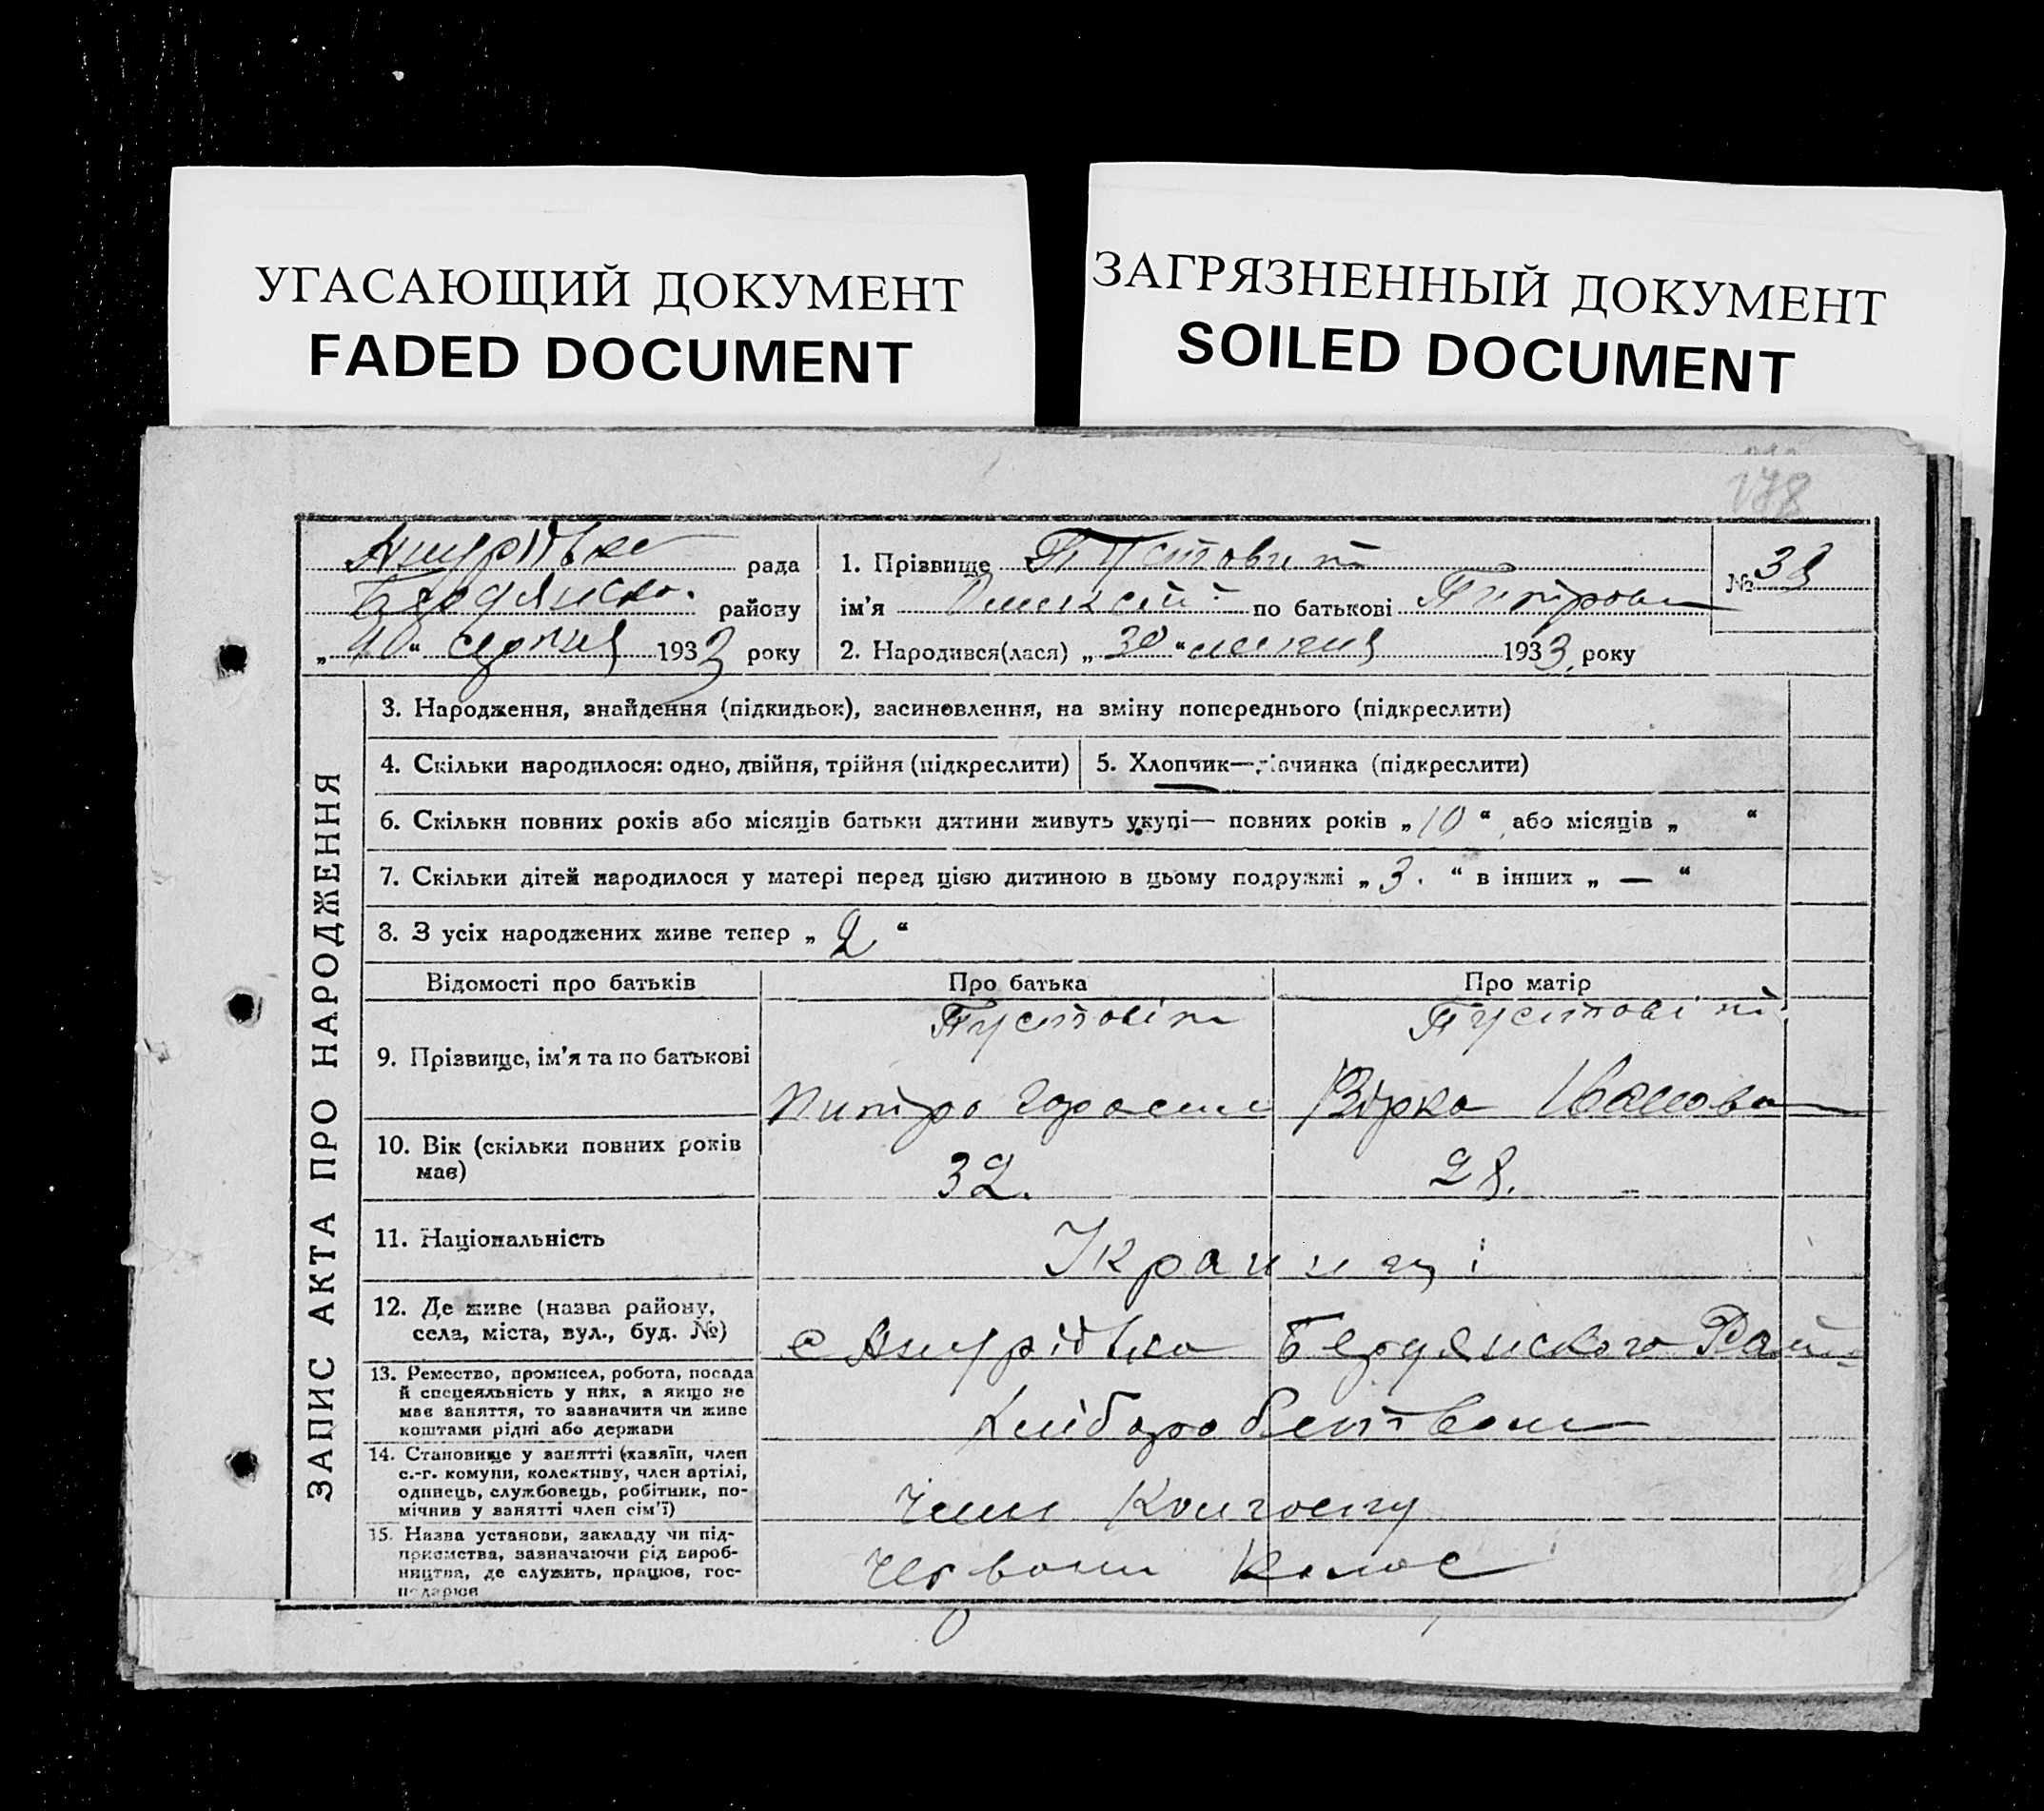 УГАСАЮЩИЙ ДОКУМЕНТ
FADED DOCUMENT
ЗАГРЯЗНЕННЫЙ ДОКУМЕНТ
SOILED DOCUMENT
178
рада
Бердянско. району
„10“ серпня 1933 року
1. Прізвище Пустовит
ім'я Олексій по батькові Питрови
№ 38
2. Народився(лася) „30“ липня 1933 року
ЗАПИС АКТА ПРО НАРОДЖЕННЯ
3. Народження, знайдення (підкидьок), засиновлення, на зміну попереднього (підкреслити)
4. Скільки народилося: одно, двійня, трійня (підкреслити)
5. Хлопчик—дівчинка (підкреслити)
6. Скільки повних років або місяців батьки дитини живуть укупі— повних років „10“, або місяців „ “
7. Скільки дітей народилося у матері перед цією дитиною в цьому подружжі „3.“ в інших „—“
8. З усіх народжених живе тепер „2“
Відомості про батьків
Про батька
Про матір
9. Прізвище, ім'я та по батькові
Пустовіт
Питро Гарасим
Пустовіт
Вірка Іванова
10. Вік (скільки повних років
має)
32.
28.
11. Національність
Украинці
12. Де живе (назва району,
села, міста, вул., буд. №)
с Бердянского Рай-
13. Ремество, промисел, робота, посада
й спецеяльність у них, а якщо не
має заняття, то зазначити чи живе
коштами рідні або держави
Хліборобством
14. Становище у занятті (хазяїн, член
с.-г. комуни, колективу, член артілі,
одинець, службовець, робітник, по-
мічник у занятті член сім'ї)
Член Колгоспу
15. Назва установи, закладу чи під-
приємства, зазначаючи рід вироб-
ництва, де служить, працює, гос-
подарює
Червони Колос